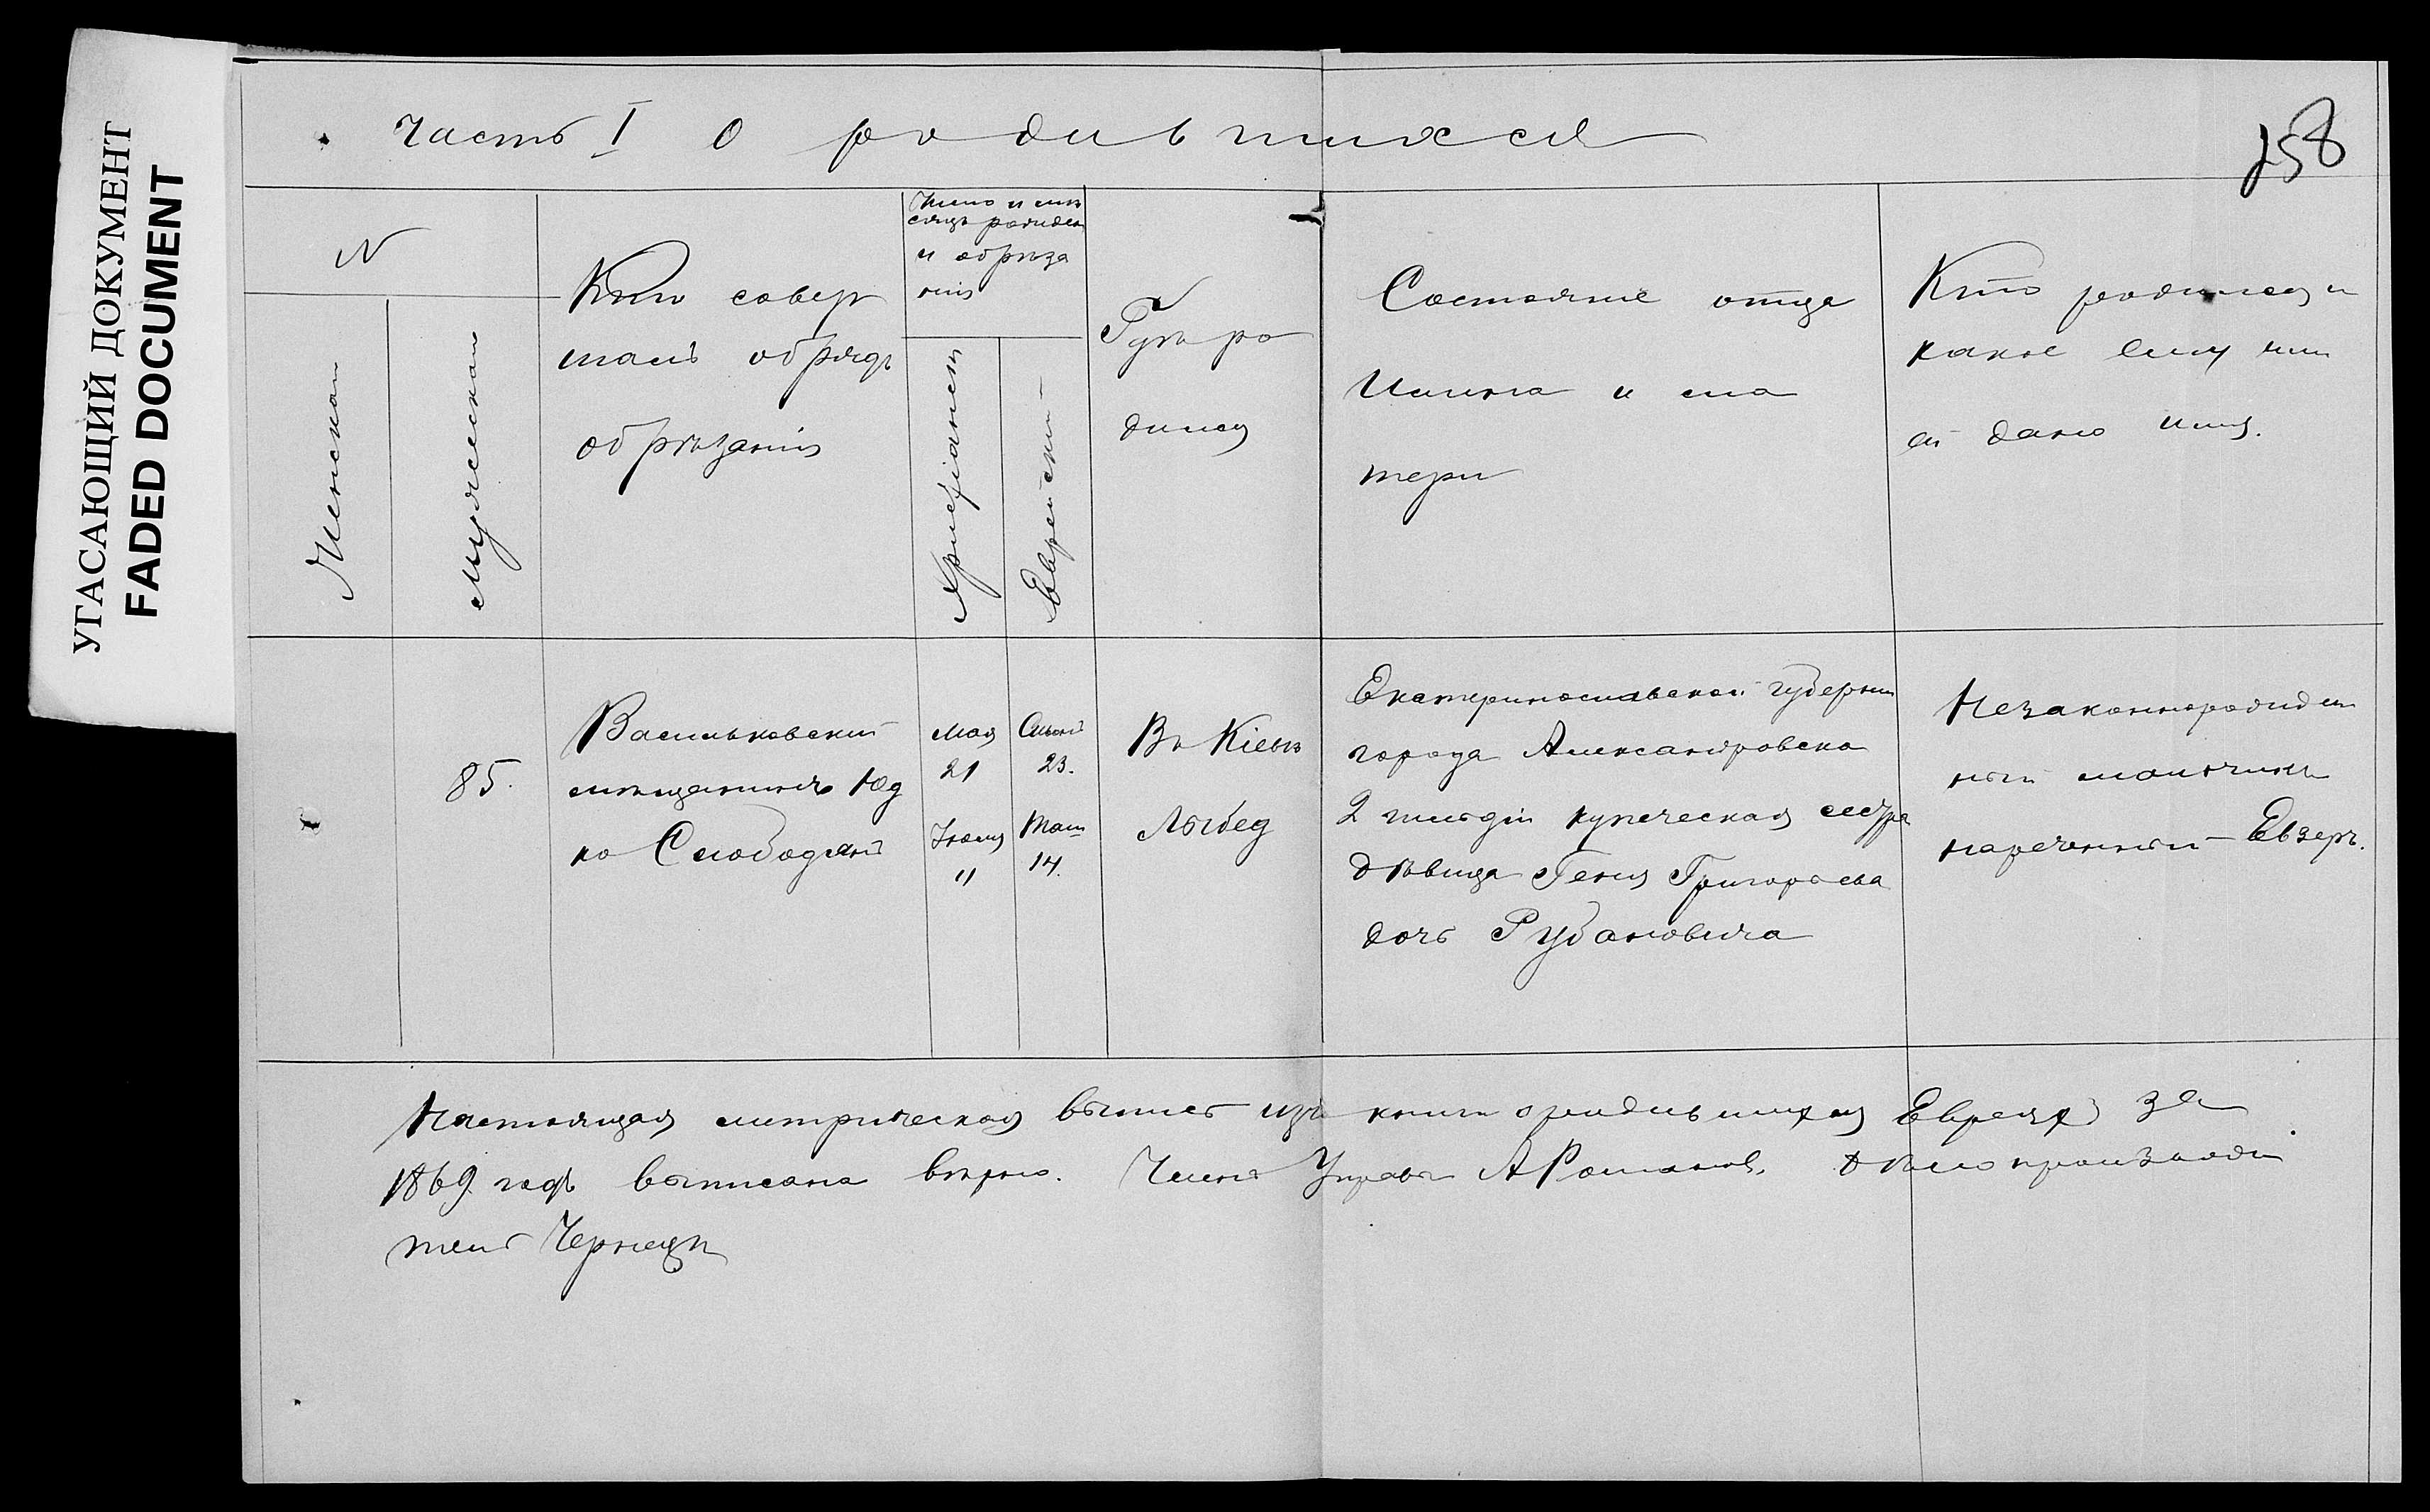 УГАСАЮЩИЙ ДОКУМЕНТ
FADED DOCUMENT
Часть I о родившихся
158
N
Женскаго
Мужескаго
Кто совер
шалъ обрядъ
обрѣзанія
Число и мѣ
сяцъ рожден
и обрѣза
нія
Христіанск
Еврейскій
Гдѣ ро
дился
Состояніе отца
Имена и ма
тери
Кто родился и
какое ему или
ей дано имя.
85.
Васильковскій
мѣщанинъ Юд
ко Слободян
Мая
21
Сивон
23.
14.
11
Въ Кіевѣ
Лыбед
Екатеринославской губерніи
города Александровска
2 гильдіи купеческая сестра
дѣвица Геня Григорьева
дочь Рубановича
Незаконнорожден
ный мальчикъ
нареченный Евзеръ.
Настоящая метрическая выпись изъ книги о родившихся Евреяхъ за
1869 годъ выписана вѣрно. Членъ Управы А Романов. Дѣлопроизводи
тель Чернецк